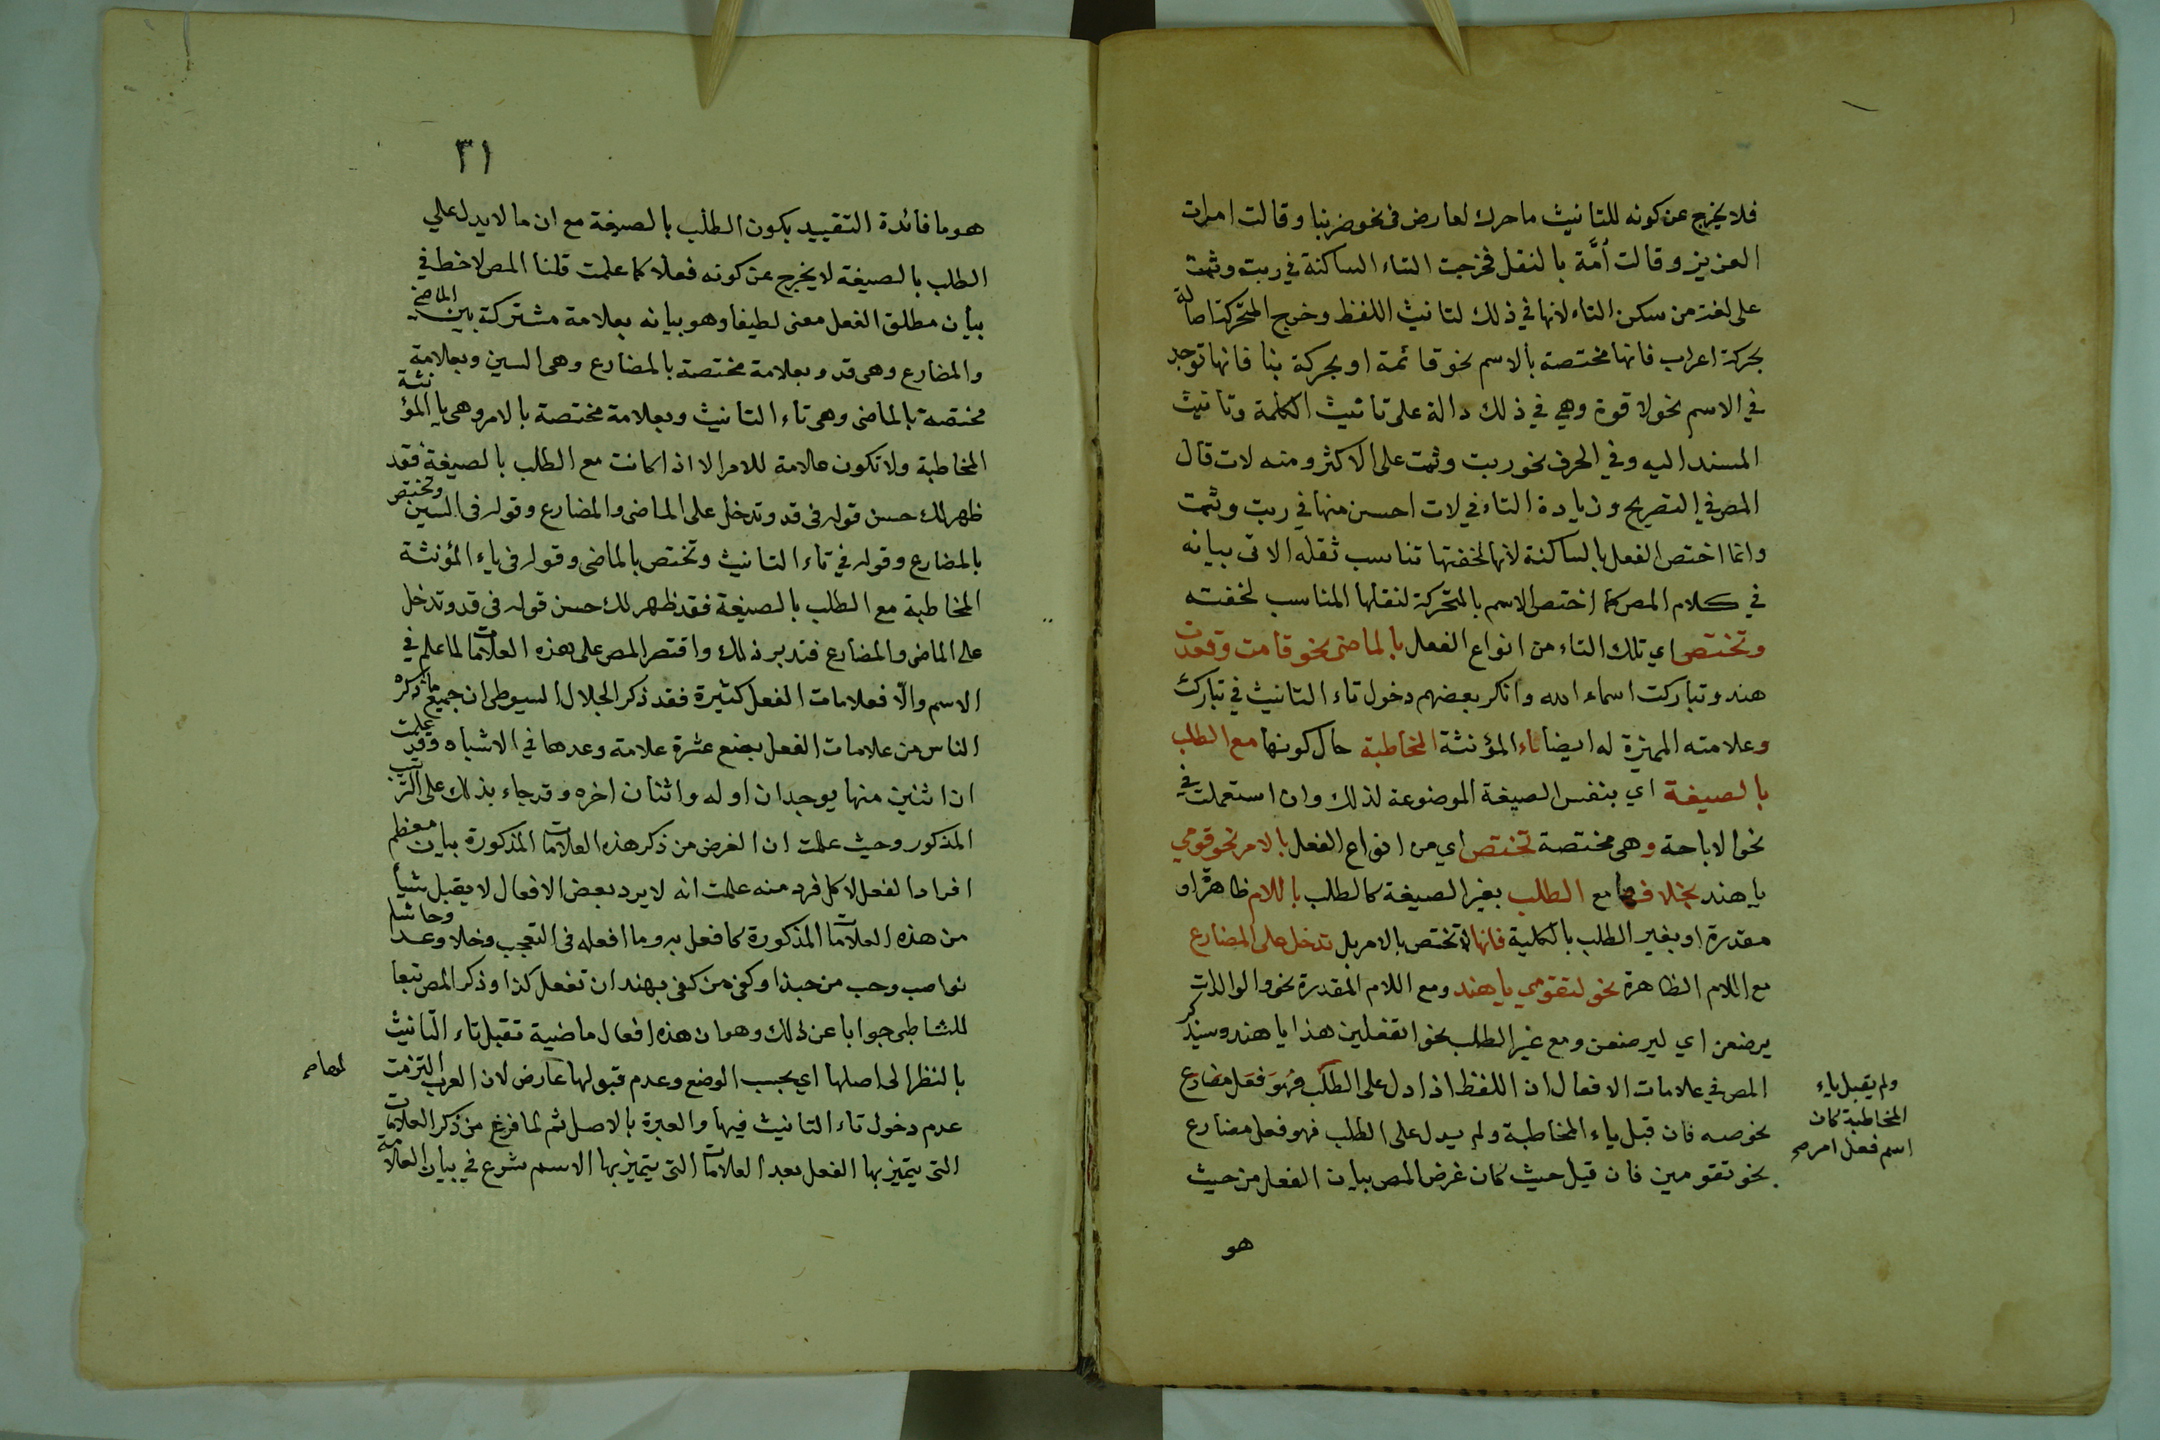 فلا يخرج عن كونه للتانيث ما حرك لعارض في نحو ضربتا وقالت امرات
العزيز وقالت أمّة بالنقل فخرجت التاء الساكنة في ربت وثمت
على لغة من سكن التاء لانها في ذلك لتانيث اللفظ وخرج المتحركة اصالة
بحركة اعراب فانها مختصة بالاسم نحو قائمة او بحركة بنا فانها توجد
في الاسم نحو لا قوة وهي في ذلك دالة على تانيث الكلمة وتانيث
المسند اليه وفي الحرف نحو ربت وثمت على الاكثر ومنه لات قال
المص في التصريح وزيادة التاء في لات احسن منها في ربت وثمت
وانما اختص الفعل بالساكنة لانها لخفتها تناسب ثقله الاتى بيانه
في كلام المص كما اختص الاسم بالمتحركة لثقلها المناسب لخفته
وتختص اي تلك التاء من انواع الفعل بالماضى نحو قامت وقعدت
هند وتباركت اسماء الله وانكر بعضهم دخول تاء التانيث في تبارك
وعلامته المميزة له ايضا ياء المؤنثة المخاطبة حال كونها مع الطلب
بالصيغة اي بنفس الصيغة الموضوعة لذلك وان استعملت في
نحو الاباحة وهى مختصة تختص اي من انواع الفعل بالامر نحو قومي
يا هند بخلافها مع الطلب بغير الصيغة كالطلب باللام ظاهرة او
مقدرة او بغير الطلب بالكلية فانها لا تختص بالامر بل تدخل على المضارع
مع اللام الظاهرة نحو لتقومي يا هند ومع اللام المقدرة نحو والوالدات
يرضعن اي ليرضعن ومع غير الطلب نحو اتفعلين هذا يا هند وسيذكر
المص في علامات الافعال ان اللفظ اذا دل على الطلب فهو فعل مضارع
نحو صه فان قبل ياء المخاطبة ولم يدل على الطلب فهو فعل مضارع
نحو تقومين فان قيل حيث كان غرض المص بيان الفعل من حيث
ولم يقبل ياء
المخاطبة كان
اسم فعل امر صح
هو
٣١
هو ما فائدة التقييد بكون الطلب بالصيغة مع ان ما لا يدل علي
الطلب بالصيغة لا يخرج عن كونه فعلا كما علمت قلنا المص لاحظ في
بيان مطلق الفعل معنى لطيفا وهو بيانه بعلامة مشتركة بين الماضى
والمضارع وهى قد وبعلامة مختصة بالمضارع وهى السين وبعلامة
مختصة بالماضى وهى تاء التانيث وبعلامة مختصة بالامر وهى ياء المؤنثة
المخاطبة ولا تكون علامة للامر الا اذا كانت مع الطلب بالصيغة فقد
ظهر لك حسن قوله فى قد وتدخل على الماضى والمضارع وقوله فى السين وتختص
بالمضارع وقوله في تاء التانيث وتختص بالماضى وقوله فى ياء المؤنثة
المخاطبة مع الطلب بالصيغة فقد ظهر لك حسن قوله فى قد وتدخل
على الماضى والمضارع فتدبر ذلك واقتصر المص على هذه العلامات لما علم في
الاسم والّا فعلامات الفعل كثيرة فقد ذكر الجلال السيوطى ان جميع ما ذكره
الناس من علامات الفعل بضع عشرة علامة وعدها في الاشباه وقد علمت
ان اثنين منها يوجدان اوله واثنان اخره وقد جاء بذلك على الترتيب
المذكور وحيث علمت ان الغرض من ذكر هذه العلامات المذكورة بيان معظم
افراد الفعل لا كل فرد منه علمت انه لا يرد بعض الافعال لا يقبل شيأ
من هذه العلامات المذكورة كافعل به وما افعله فى التعجب وخلا وعدا وحاشا
نواصب وحب من حبذا وكفى من كفى بهند ان تفعل كذا وذكر المص تبعا
للشاطبى جوابا عن ذلك وهو ان هذه افعال ماضية تقبل تاء التانيث
بالنظر الى اصلها اي بحسب الوضع وعدم قبولها عارض لان العرب التزمت
عدم دخول تاء التانيث فيها والعبرة بالاصل ثم لما فرغ من ذكر العلامات
التى يتميز بها الفعل بعد العلامات التى يتميز بها الاسم شرع في بيان العلامة